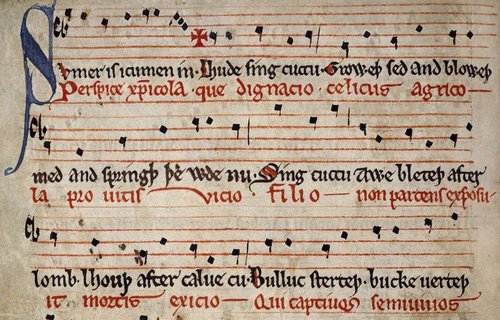 Sumer is icumen in· Lhude sing cuccu· Groweþ sed and bloweþ
Perspice xp̅icola· que dignacio celicus agrico–
med and springþ þe wde nu· Sing cuccu Awe bleteþ after
la pro uitis vicio filio — non parcens exposu-
lomb· lhouþ after calue cu· Bulluc sterteþ· bucke uerteþ
it mortis exicio — Qui captiuos semiuiuos